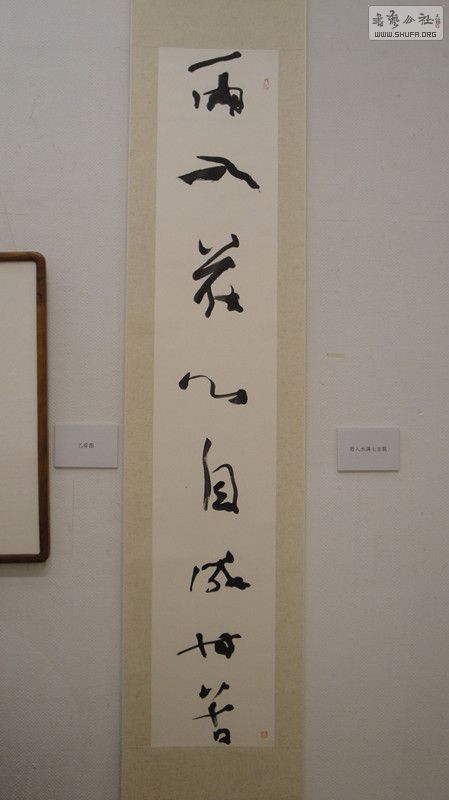 書藝公社
WWW.SHUFA.ORG
雨入花心自成甘苦